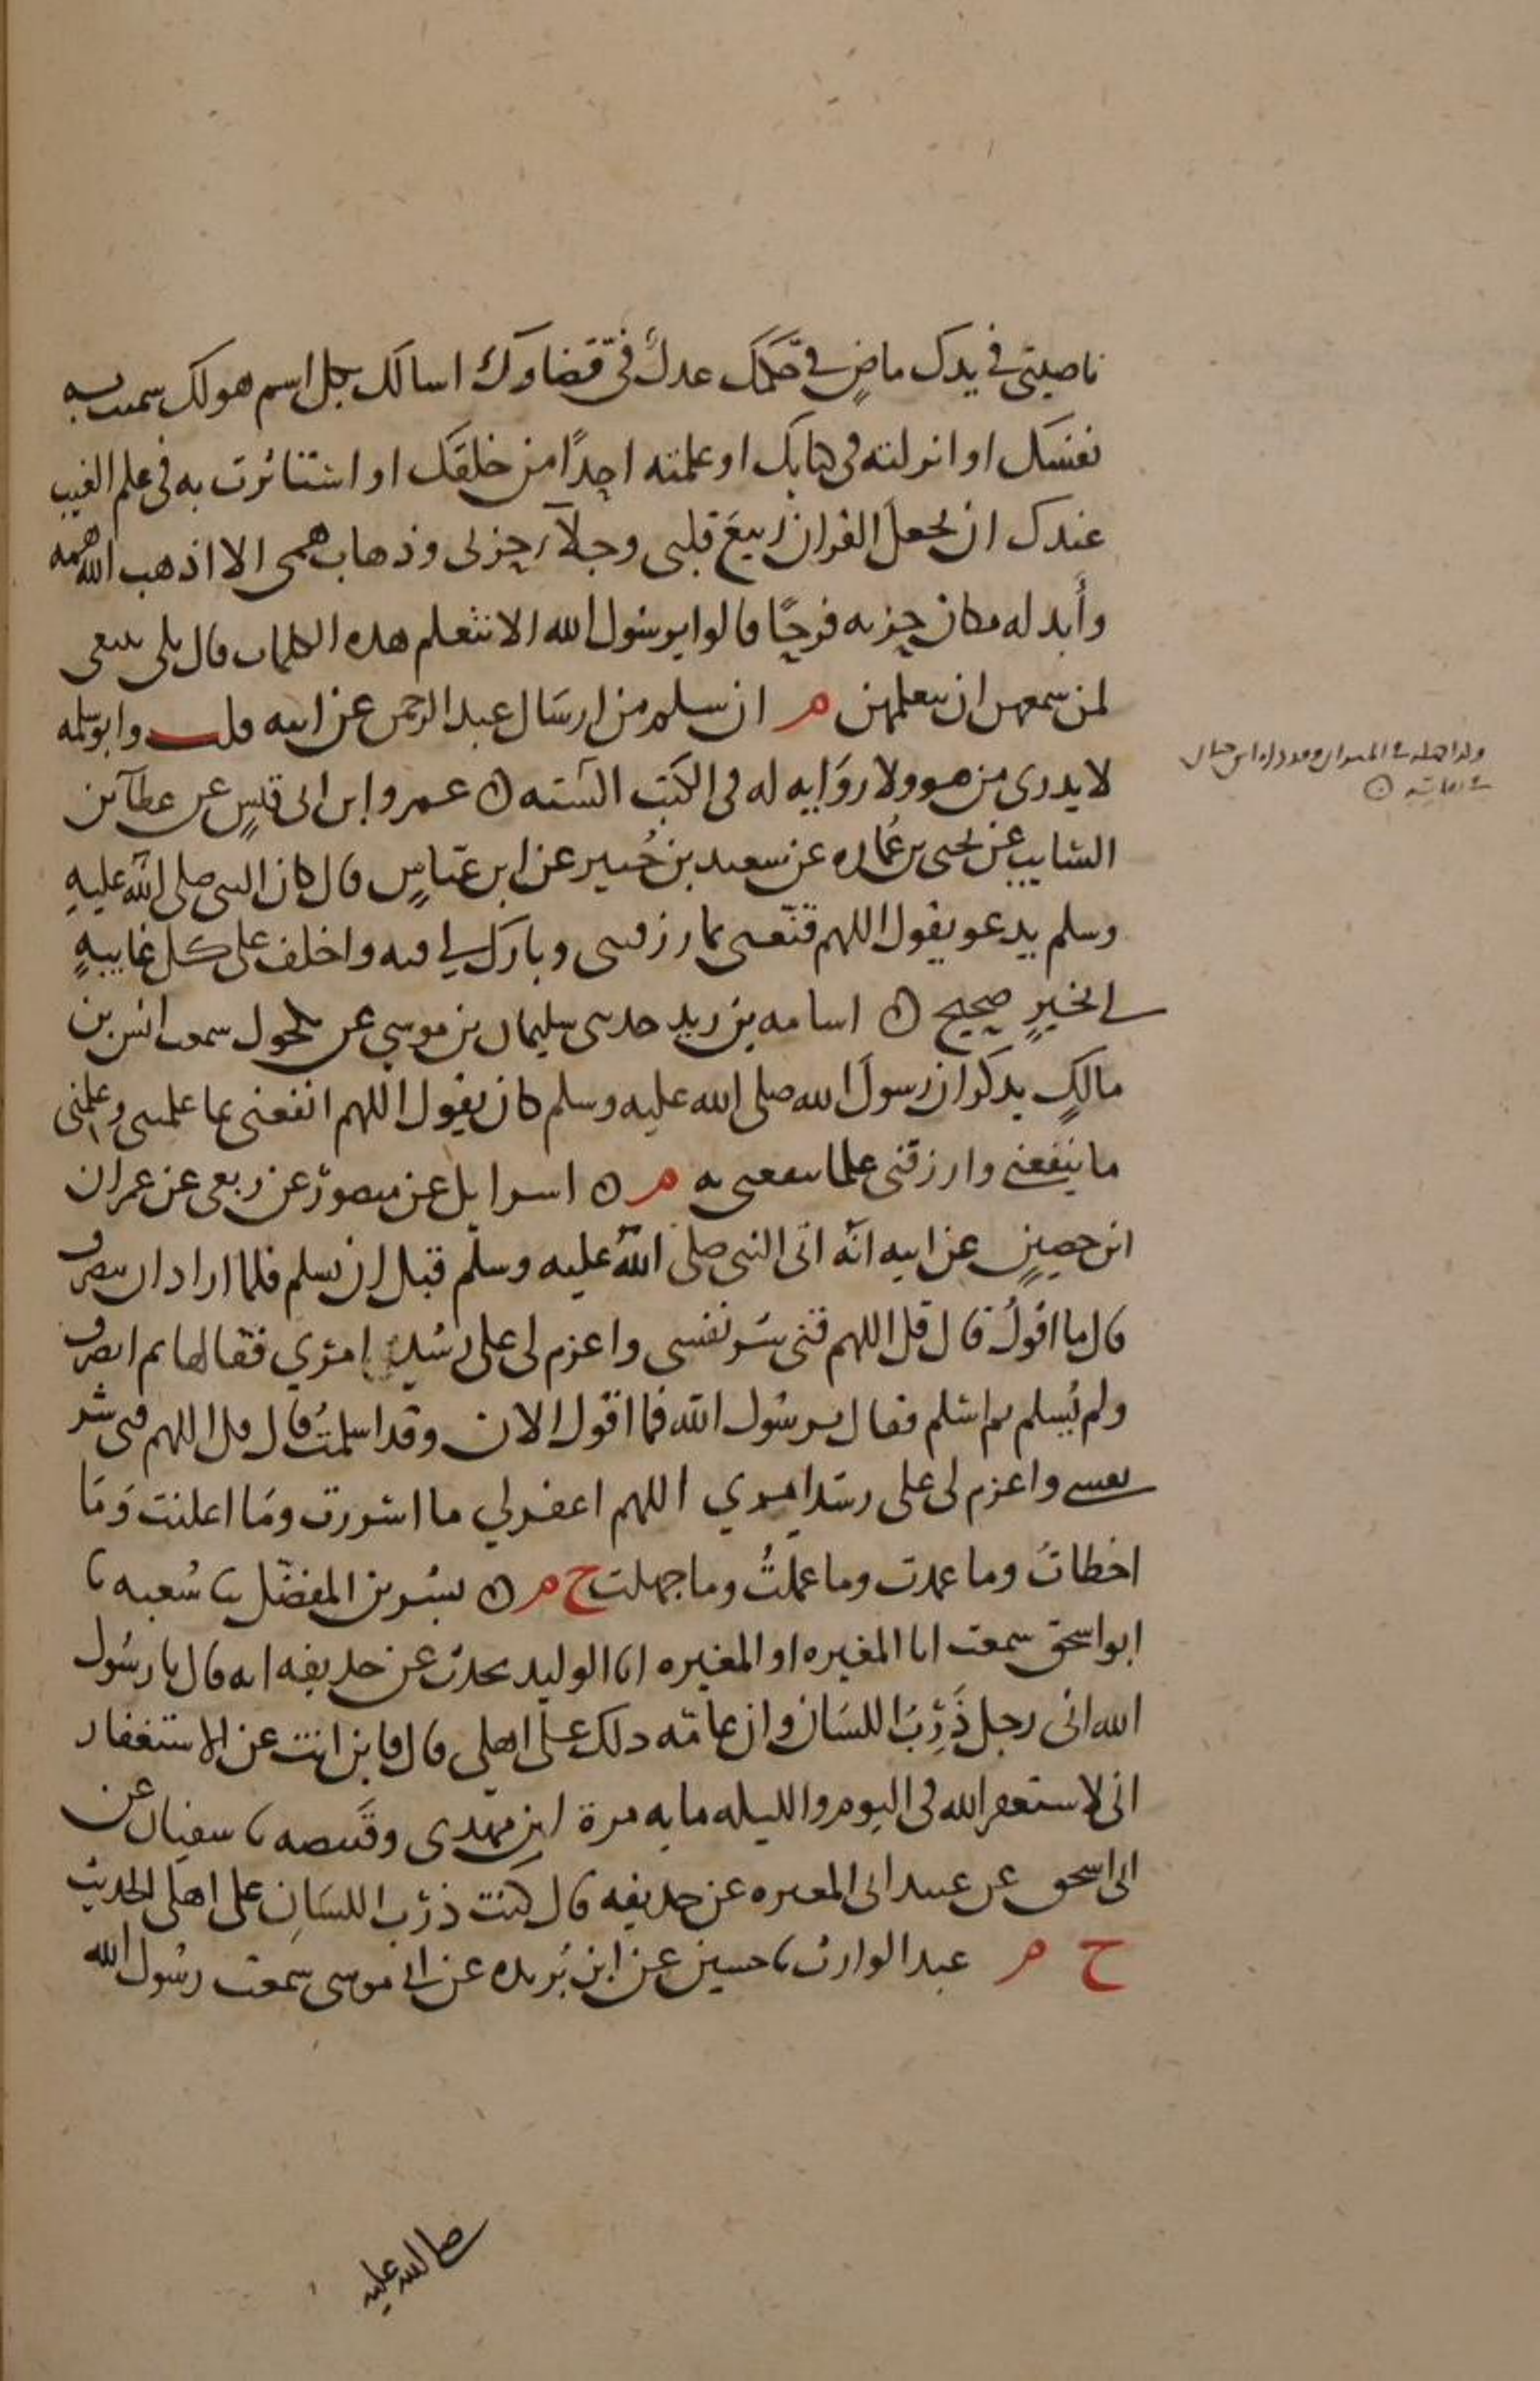 ناصيتي في يدك ماضٍ في حكمك عدلٌ في قضاوك اسالك بكل اسم هو لك سميت به
نفسك او انزلته في كتابك او علمته احدًا من خلقك او استاثرت به في علم الغيب
عندك ان تجعل القران ربيع قلبي وجلآء حزني وذهاب همي الا اذهب الله همه
وأبدله مكان حزنه فرحًا قالوا يرسول الله الا نتعلم هده الكلمات قال بلى ينبغي
لمن سمعهن ان يتعلمهن م ان سلم من ارسال عبد الرحمن عن ابيه قلت وابو سلمه
لا يدرى من هو ولا رواية له في الكتب الستة ن عمرو ابن ابي قيس عن عطآ بن
السايب عن يحيى بن عماره عن سعيد بن جبير عن ابن عباس قال كان النبي صلى الله عليه
وسلم يدعو يقول اللهم قنعني بما رزقتني وبارك لي فيه واخلف على كل غايبةٍ
لي بخيرٍ صحيح ن اسامه بن زيد حدثني سليمان بن موسى عن مكحول سمعت انس بن
مالكٍ يذكر ان رسول الله صلى الله عليه وسلم كان يقول اللهم انفعني بما علمتني وعلمني
ما ينفعني وارزقني علما تنفعني به م ن اسرايل عن منصور عن ربعي عن عمران
ابن حصين عن ابيه انه اتى النبي صلى الله عليه وسلم قبل ان يسلم فلما اراد ان ينصرف
قال ما اقولُ قال قل اللهم قني شر نفسي واعزم لي على رشد امري فقالها ثم انصرف
ولم يُسلم ثم اسلم فقال يرسول الله فما اقول الان وقد اسلمتُ قال قل اللهم قني شر
نفسي واعزم لي على رشد امري اللهم اغفر لي ما اسررت وما اعلنت وما
اخطات وما عمدت وما علمتُ وما جهلت خ م ن بشر بن المفضل ثنا شعبه ثنا
ابو اسحق سمعت ابا المغيره او المغيره ابا الوليد يحدث عن حذيفه انه قال يا رسول
الله اني رجل ذَرِبُ اللسان وان عامّه دلك على اهلي قال فاين انت عن الاستغفار
اني لاستغفر الله في اليوم والليله مايه مرة ابن مهدي وقَبيصه ثنا سفيان عن
ابي اسحق عن عبيد ابي المغيره عن حذيفه قال كنت ذرب اللسانِ على اهلي الحديث
خ م عبد الوارث ثنا حسين عن ابن بُريده عن ابي موسى سمعت رسول الله
صلى الله عليه